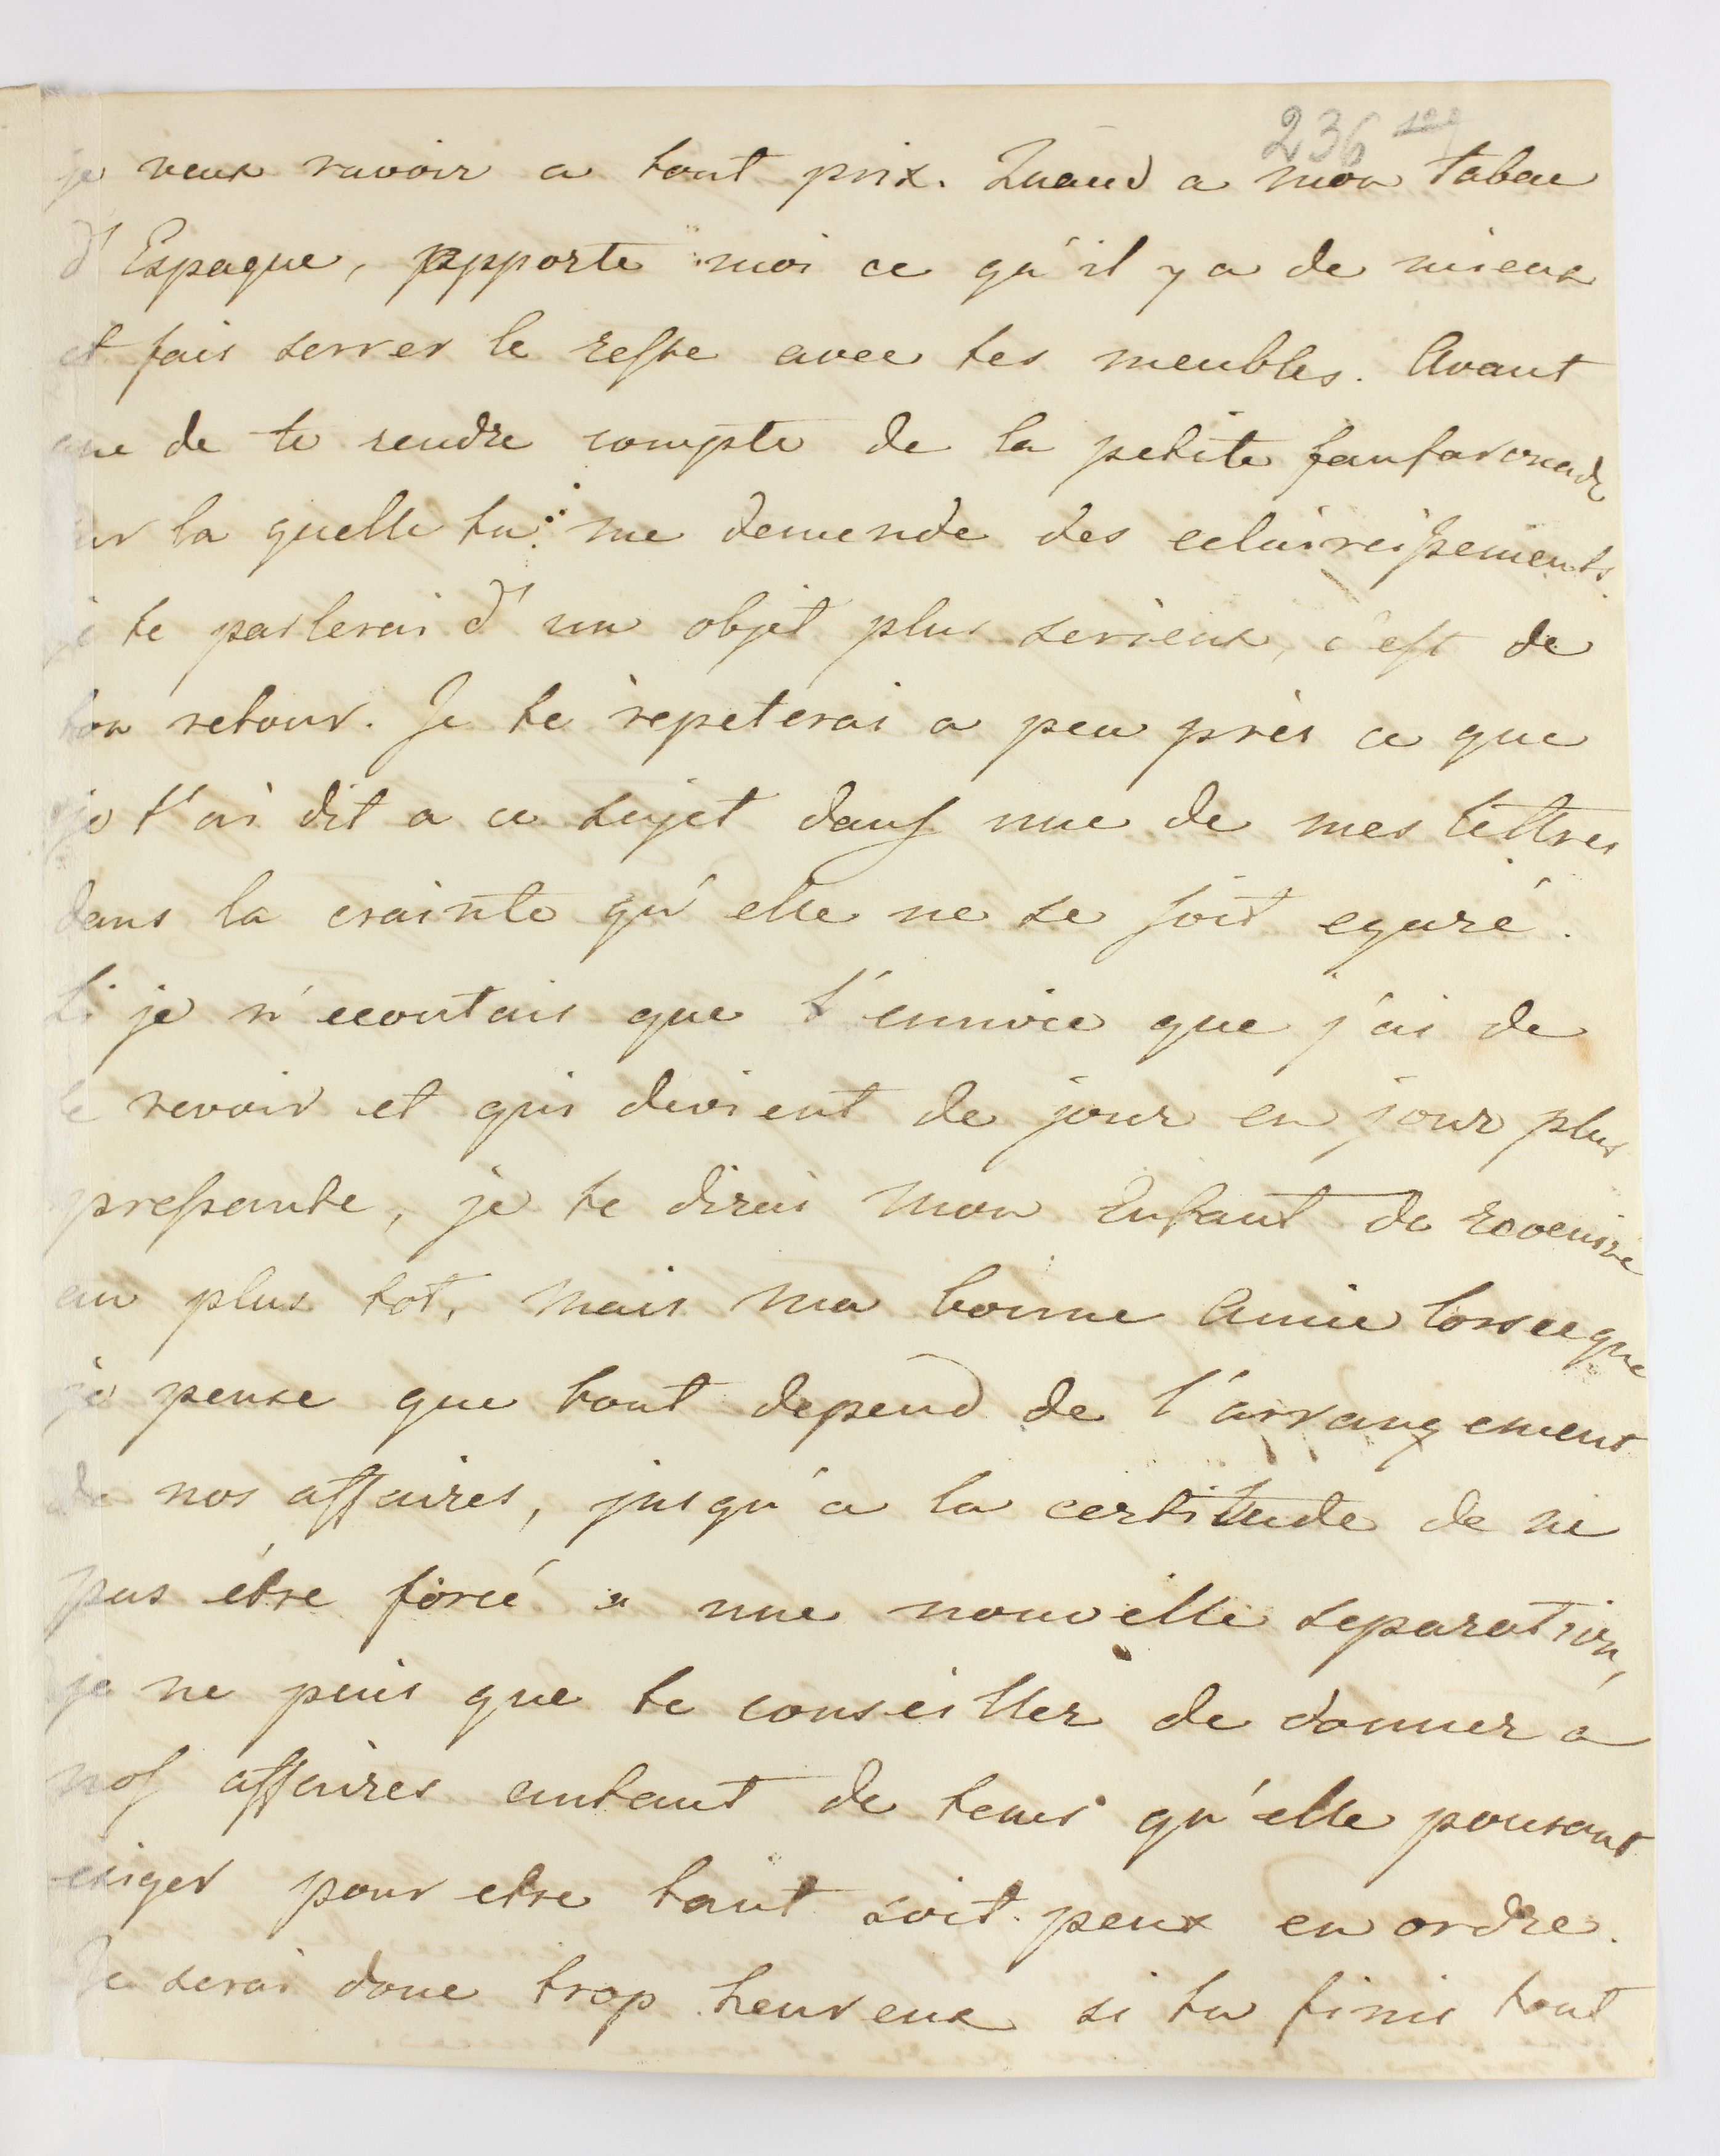 236 129
je veux ravoir a tout prix. Quand a mon tabac
d'Espagne, apporte moi ce qu'il y a de mieux
et fais serrer le reste avec tes meubles. Avant
que de te rendre compte de la petite fanfaronade
sur la quelle tu me demende des eclaircissements.
je te parlerai d'un objet plus serieux, c'est de
ton retour. Je te repeterai a peu près ce que
je t'ai dit a ce sujet dans une de mes lettres
dans la crainte qu'elle ne se soit egaré.
Si je n'ecoutais que l'envie que j'ai de
te revoir et qui devient de jour en jour plus
pressante, je te dirai mon Enfant de revenire
au plus tot, mais ma bonne Amie lorseque
je pense que tout depend de l'arrangement
de nos affaires, jusqu'a la certitude de ne
pas être forcé a une nouvelle separation,
je ne puis que te conseiller de donner à
nos affaires autant de tems qu'elle pouront
exiger pour etre tant soit peux en ordre.
Je serai donc trop heureux si tu finis tout